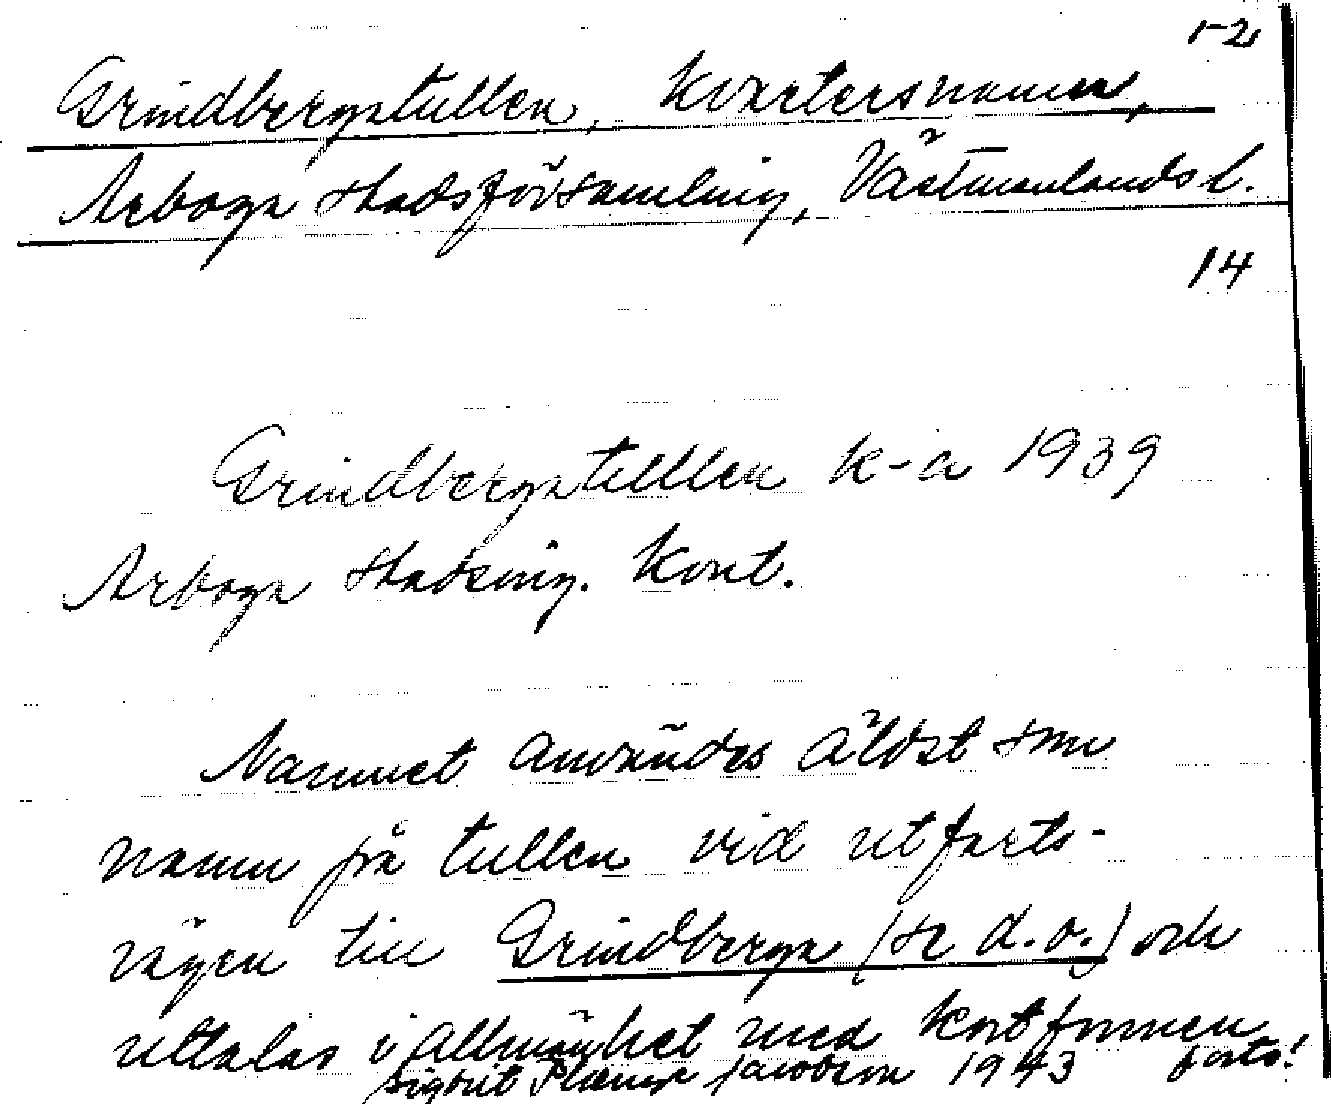 1-2
Grindbergatullen, kvartersnamn,
Arboga stadsförsamling, Västmanlands l.
14
Grindbergatullen k-a 1939
Arboga stadsing. kont.
Namnet användes äldst som
namn på tullen vid utfarts-
vägen till Grindberga (se d.o.) och
uttalas i allmänhet med kortformen
Sigbrit Plænge Jacobson 1943 forts!